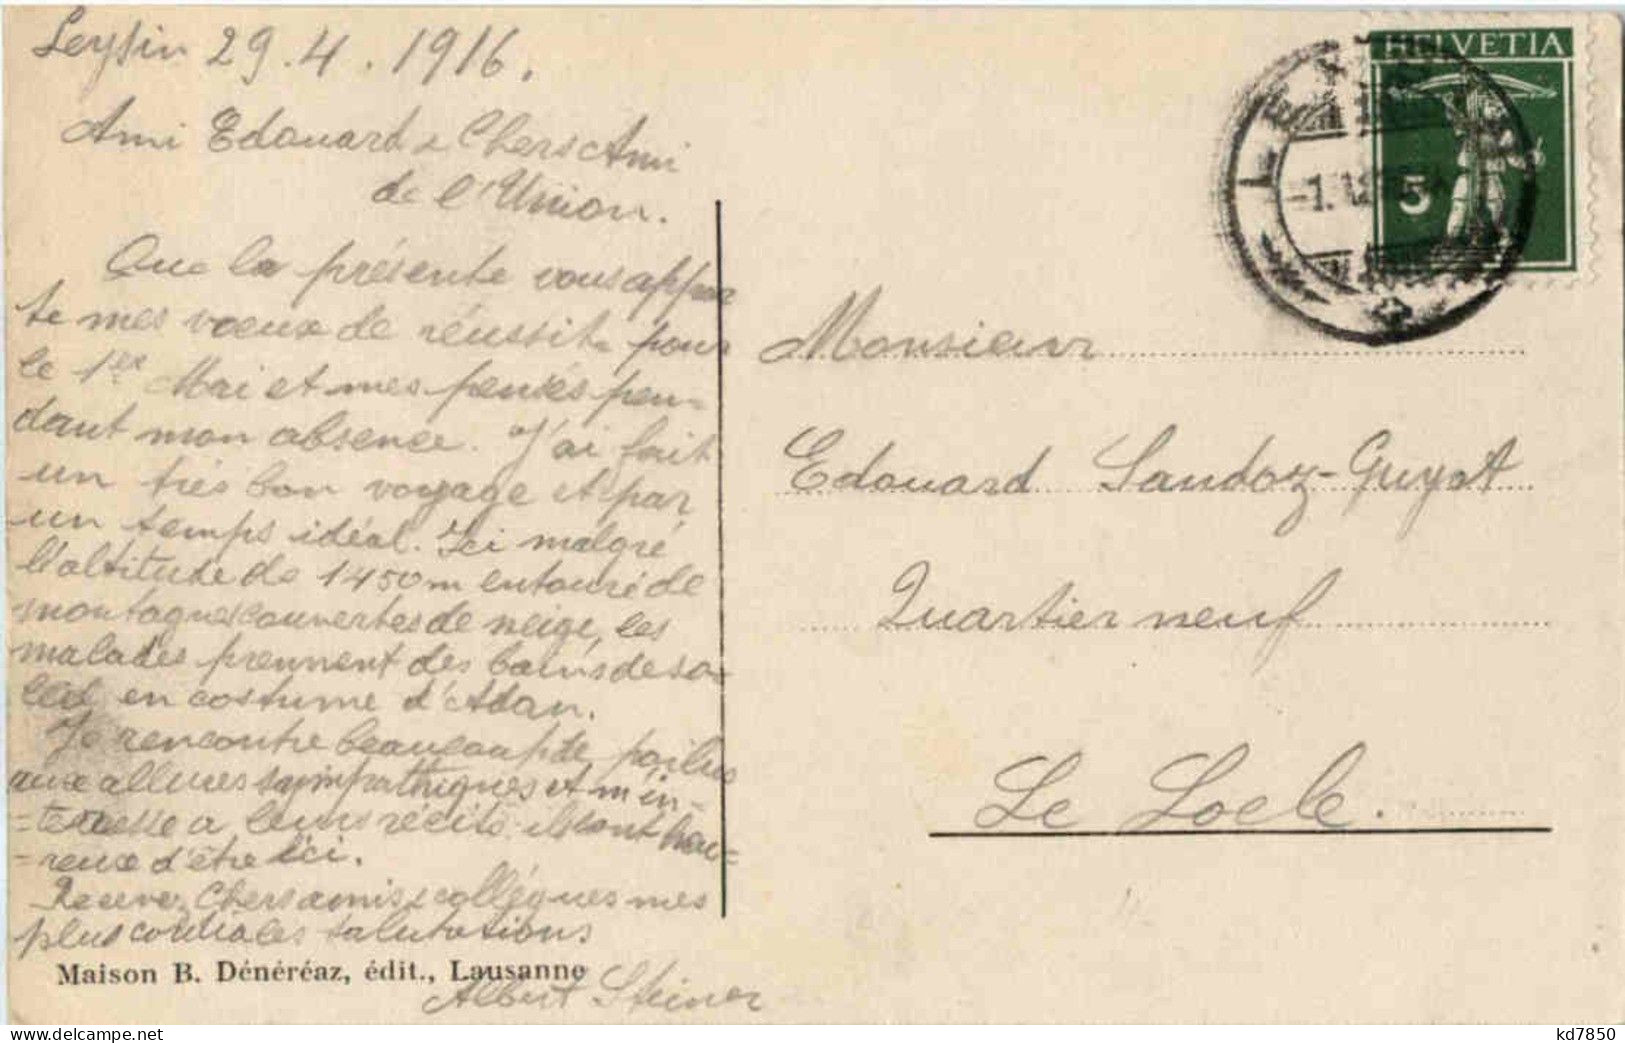 Leysin 29.4.1916.
Ami Edouard & Chers Ami
de l'Union.
Que la présente vous appor
te mes voeux de réussite pour
le 1er Mai et mes pensés pen=
dant mon absence. J'ai fait
un très bon voyage et par
un temps idéal. Ici malgré
l'altitude de 1450m entouré de
montagnes couvertes de neige, les
malades prennent des bains de so=
leil en costume d'Adan.
Je rencontre beaucoup de poilus
aux allures sympathiques et m'in=
=téresse a leurs récits. ils sont heu=
=reux d'être ici.
Recevez Chers amis & collégues mes
plus cordiales salutations
Albert Steiner
Maison B. Dénéréaz, édit., Lausanne
HELVETIA
5
-1.
Monsieur
Edouard Sandoz-Guyot
Quartier neuf
Le Locle.
kd7850